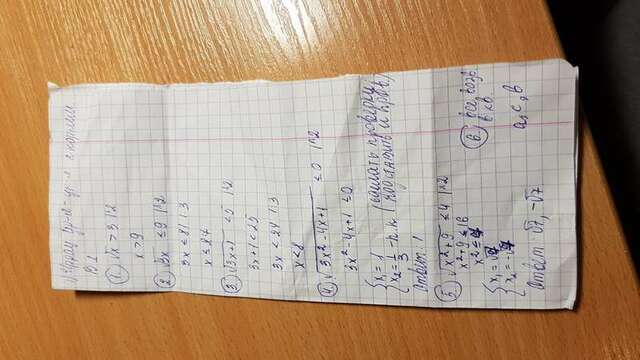 В 1
1. √x > 3 |^2
x > 9
2. √3x ≤ 9 |^2
3x ≤ 81 :3
x ≤ 27
3. √3x+1 < 5 |^2
3x+1 < 25
3x < 24 :3
x < 8
4. √3x²-4x+1 ≤ 0 |^2
3x²-4x+1 ≤ 0
x₁ = 1 (сделать проверку
x₂ = 1/3 - п.к подставить и пров)
Ответ 1
5. √x²+9 ≤ 4 |^2
x²+9 ≤ 16
x² ≤ 7
x₁ = √7
x₂ = -√7
Ответ √7, -√7
6. все возв
в кв
а, с, в